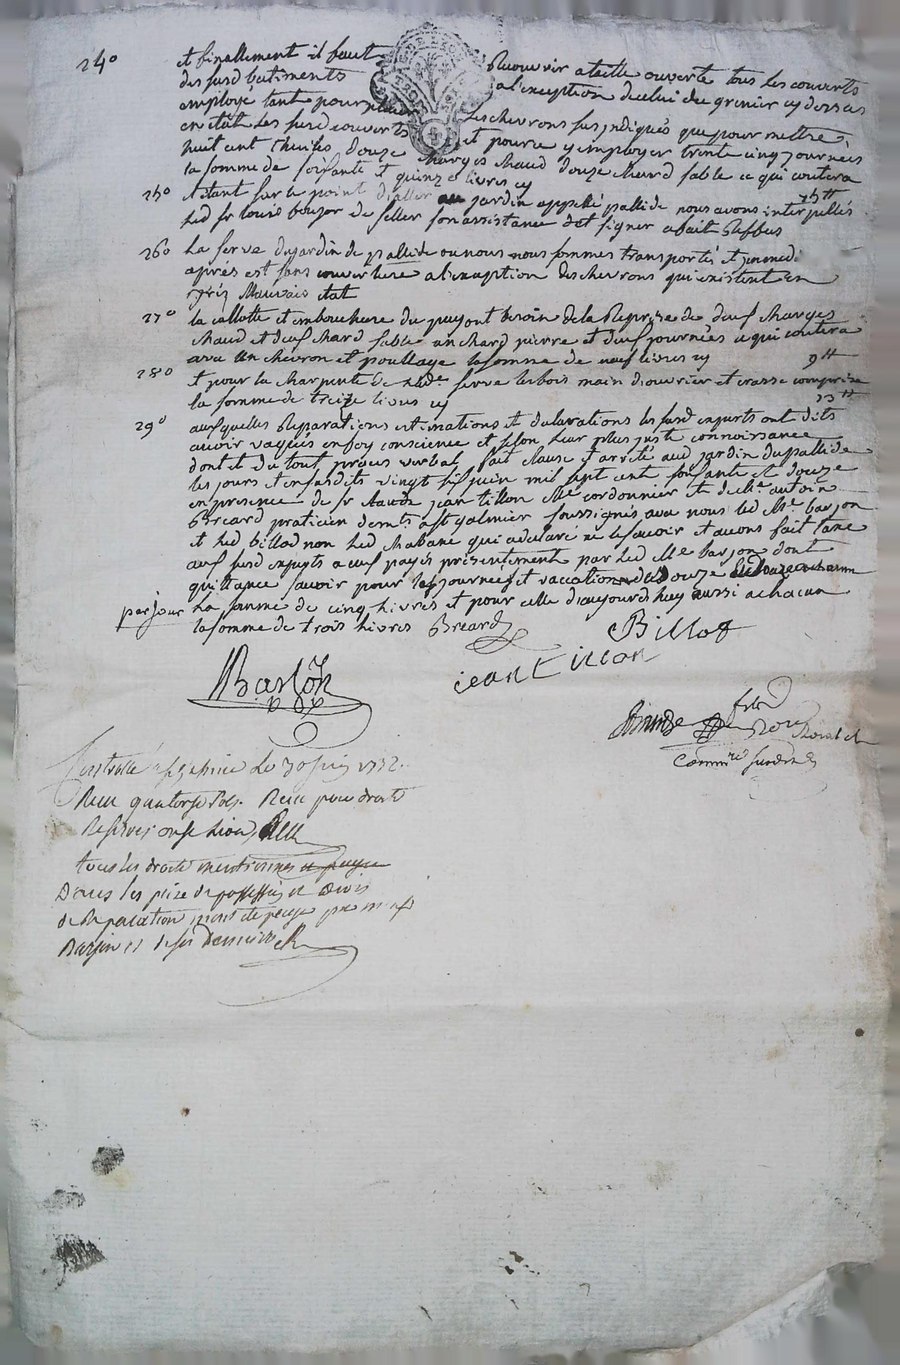 24° et finallement il faut Recouvrir a taille ouverte tous les couverts
des susd batiments a l'exception de celui du grenier cy dessus
employé tant pour les chevrons sus indiqués que pour mettre
en état les susd couverts et pourra y employer trente cinq journées
huit cent thuiles douze charges chaud douze chard sable ce qui coutera
la somme de soixante et quinze livres cy 75tt
25° Etant sur le point d'aller au jardin appellé pallide nous avons interpellés
led sr louis boyor de seller son assistance et signer a fait Reffus
26° La serve du jardin de pallide ou nous nous sommes transportés
après est sans couverture a l'exception des chevrons qui existent en
très Mauvais état
27° la callotte et embouchure du puy ont besoin de la Reprise de deux charges
chaud et deux chard sable un chard pierre et deux journées ce qui coutera
avec un chevron et poullage la somme de neuf livres cy 9tt
28° et pour la charpente de lade serve le bois main d'ouvrier et crasse comprise
la somme de treize livres cy 13tt
29° auxquelles Reparations estimations et declarations les susd experts ont dits
avoir vaqués en foy conscience et selon leur plus juste connoissance
dont et du tout procès verbal fait clause et arrêté aud jardin du pallide
les jours et an susdits vingt six juin mil sept cent soixante et douze
en presence de sr jean tillon Me cordonnier et de Me antoine
Breard praticien demts a st galmier soussignés avec nous led Me barjon
et led billod non led Mabane qui a declaré ne le scavoir et avons fait taxe
aux susd experts a eux payés présentement par led Me barjon dont
quittance scavoir pour les journées et vaccations de douze
per jour La somme de cinq livres et pour celle d'aujourd'huy aussi a chacun
la somme de trois livres Breard Billod
Barjon jean tillon
Commre
Controllé a st galmier Le 30 juin 1772.
Reçu quatorze sols. Reçu pour droits
Reservés onze livres
tous les droits mentionnes
Dans les prise de possession et Devis
de Reparation mont été payé par m
Barjon